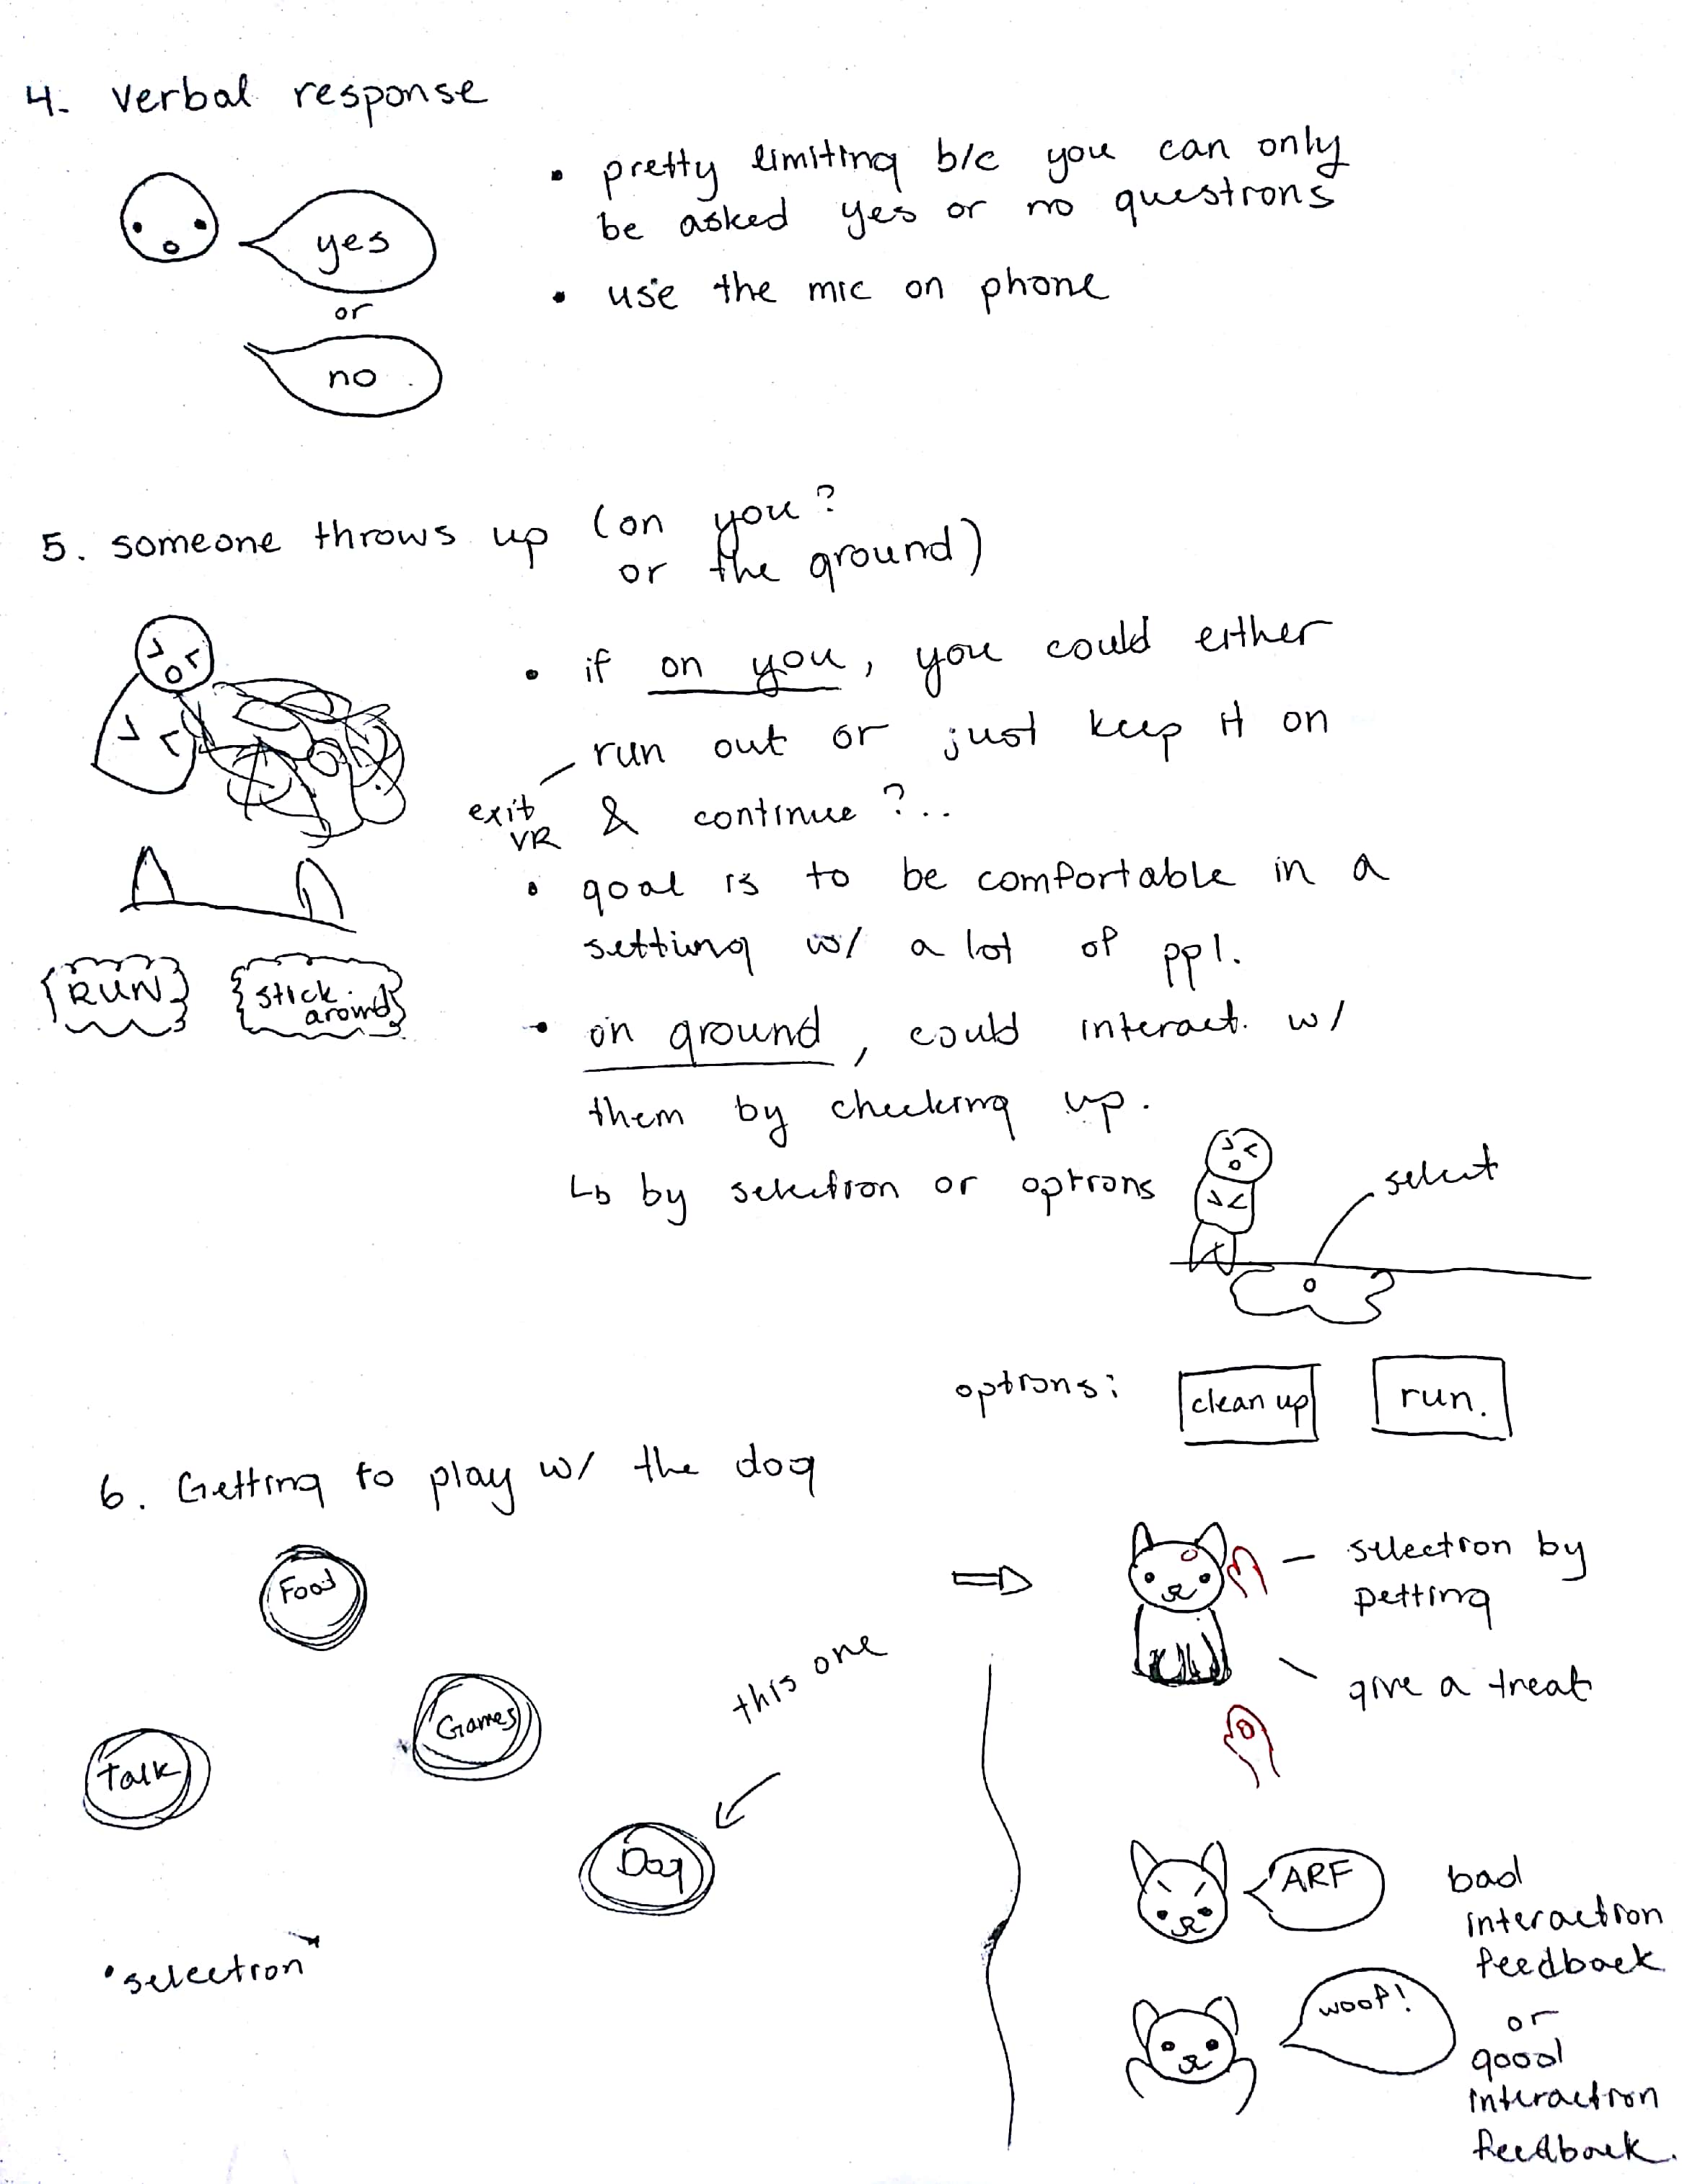 4. verbal response
yes
or
no
• pretty limiting b/c you can only
be asked yes or no questions
• use the mic on phone
5. someone throws up (on you?
or the ground)
• if on you, you could either
run out or just keep it on
exit
VR
& continue?..
• goal is to be comfortable in a
setting w/ a lot of ppl.
RUN
stick
around
• on ground, could interact w/
them by checking up.
↳ by selection or options
select
options:
clean up
run.
6. Getting to play w/ the dog
Food
Games
Talk
this one
Dog
• selection
⇒
– selection by
petting
give a treat
ARF
bad
interaction
feedback
or
woof!
good
interaction
feedback.